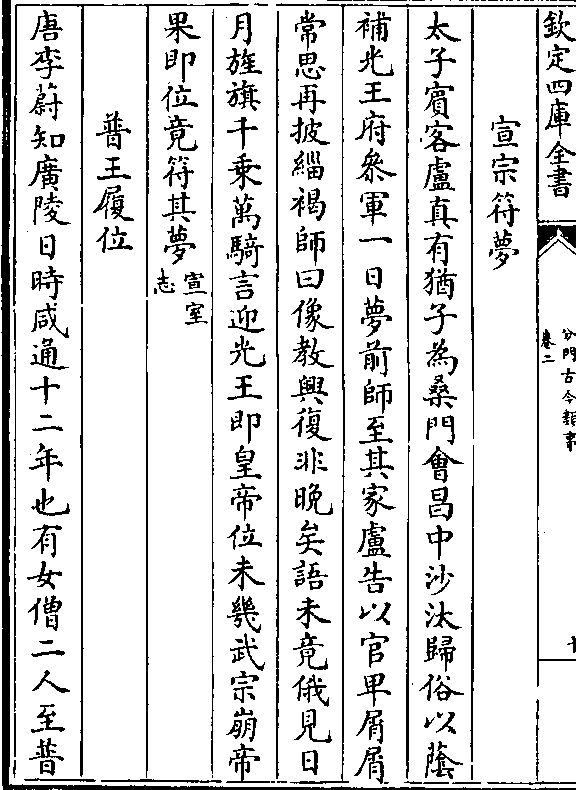 欽定四庫全書
分門古今類事
卷二
宣宗符夢
太子賓客盧真有猶子為桑門會昌中沙汰歸俗以蔭
補光王府叅軍一日夢前師至其家盧告以官卑屑屑
常思再披緇褐師曰像教興復非晚矣語未竟俄見日
月旌旗千乘萬騎言迎光王即皇帝位未幾武宗崩帝
果即位竟符其夢宣室志
普王履位
唐李蔚知廣陵日時咸通十二年也有女僧二人至普